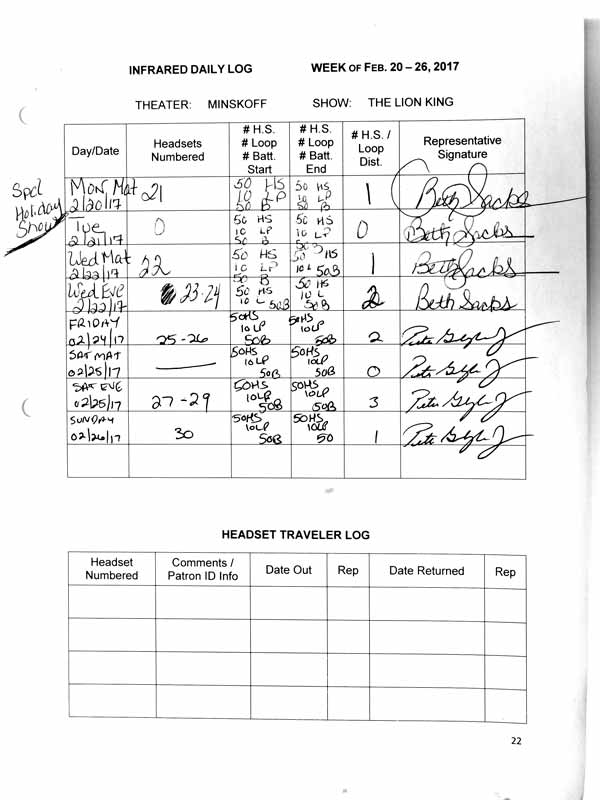 INFRARED DAILY LOG WEEK OF FEB. 20 – 26, 2017
THEATER: MINSKOFF SHOW: THE LION KING
Day/Date
Headsets
Numbered
# H.S.
# Loop
# Batt.
Start
# H.S.
# Loop
# Batt.
End
# H.S. /
Loop
Dist.
Representative
Signature
Spcl
Holiday
Show
Mon Mat
2/20/17
21
50 HS
10 LP
50 B
50 HS
10 LP
50 B
1
Beth Sacks
Tue
2/21/17
0
50 HS
10 LP
50 B
50 HS
10 LP
50 B
0
Beth Sacks
Wed Mat
2/22/17
22
50 HS
10 LP
50 B
50 HS
10 L 50B
1
Beth Sacks
Wed Eve
2/22/17
23-24
50 HS
10 L 50B
50 H
10 L
50B
2
Beth Sacks
FRIDAY
02/24/17
25-26
50HS
10LP
50B
50HS
10LP
50B
2
SAT MAT
02/25/17
50HS
10LP
50B
50HS
10LP
50B
0
SAT EVE
02/25/17
27-29
50HS
10LP
50B
50HS
10LP
50B
3
SUNDAY
02/26/17
30
50HS
10LP
50B
50HS
10LP
50
1
HEADSET TRAVELER LOG
Headset
Numbered
Comments /
Patron ID Info
Date Out
Rep
Date Returned
Rep
22